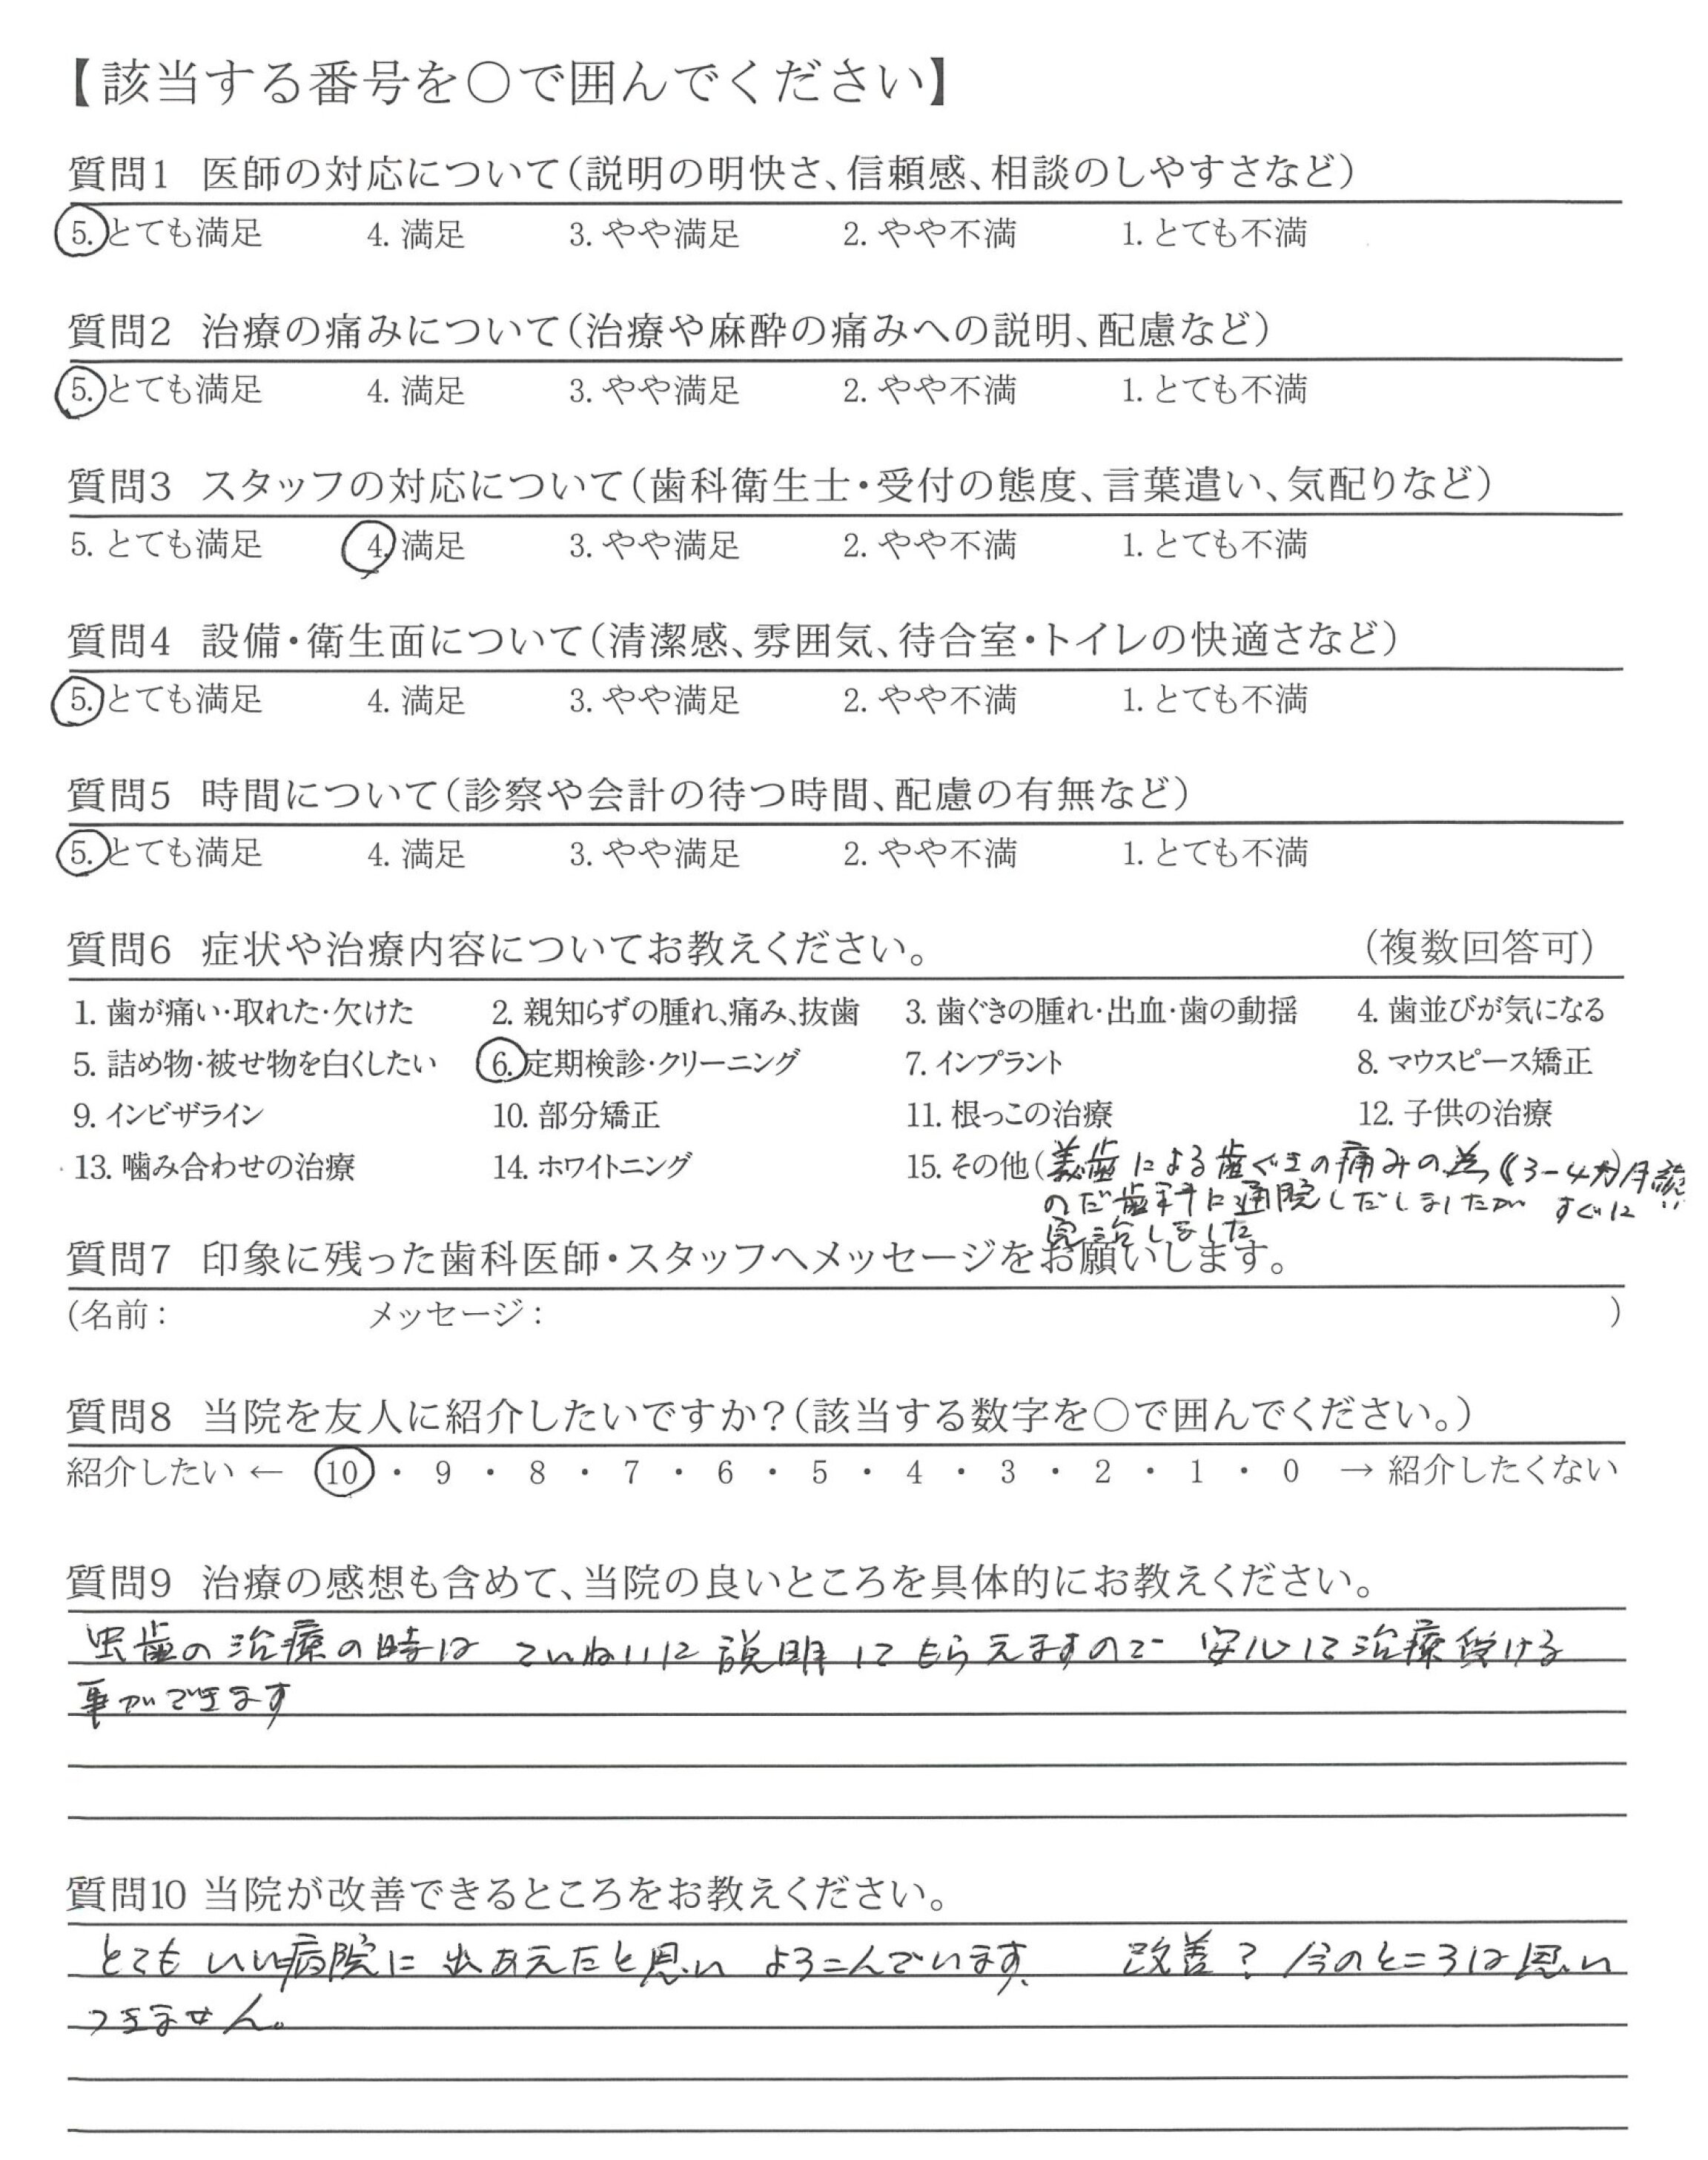 【該当する番号を〇で囲んでください】
質問1 医師の対応について（説明の明快さ、信頼感、相談のしやすさなど）
5. とても満足 4. 満足 3. やや満足 2. やや不満 1. とても不満
質問2 治療の痛みについて（治療や麻酔の痛みへの説明、配慮など）
5. とても満足 4. 満足 3. やや満足 2. やや不満 1. とても不満
質問3 スタッフの対応について（歯科衛生士・受付の態度、言葉遣い、気配りなど）
5. とても満足 4. 満足 3. やや満足 2. やや不満 1. とても不満
質問4 設備・衛生面について（清潔感、雰囲気、待合室・トイレの快適さなど）
5. とても満足 4. 満足 3. やや満足 2. やや不満 1. とても不満
質問5 時間について（診察や会計の待つ時間、配慮の有無など）
5. とても満足 4. 満足 3. やや満足 2. やや不満 1. とても不満
質問6 症状や治療内容についてお教えください。 （複数回答可）
1. 歯が痛い・取れた・欠けた 2. 親知らずの腫れ、痛み、抜歯 3. 歯ぐきの腫れ・出血・歯の動揺 4. 歯並びが気になる
5. 詰め物・被せ物を白くしたい 6. 定期検診・クリーニング 7. インプラント 8. マウスピース矯正
9. インビザライン 10. 部分矯正 11. 根っこの治療 12. 子供の治療
13. 噛み合わせの治療 14. ホワイトニング 15. その他（義歯による歯ぐきの痛みの為（3-4カ月
のだ歯科に通院しだしましたが すぐに
完治しました
質問7 印象に残った歯科医師・スタッフへメッセージをお願いします。
（名前： メッセージ： ）
質問8 当院を友人に紹介したいですか？（該当する数字を〇で囲んでください。）
紹介したい ← 10 ・ 9 ・ 8 ・ 7 ・ 6 ・ 5 ・ 4 ・ 3 ・ 2 ・ 1 ・ 0 → 紹介したくない
質問9 治療の感想も含めて、当院の良いところを具体的にお教えください。
虫歯の治療の時は ていねいに説明してもらえますので 安心して治療受ける
事ができます
質問10 当院が改善できるところをお教えください。
とてもいい病院に出あえたと思い よろこんでいます。 改善？今のところは思い
つきません。